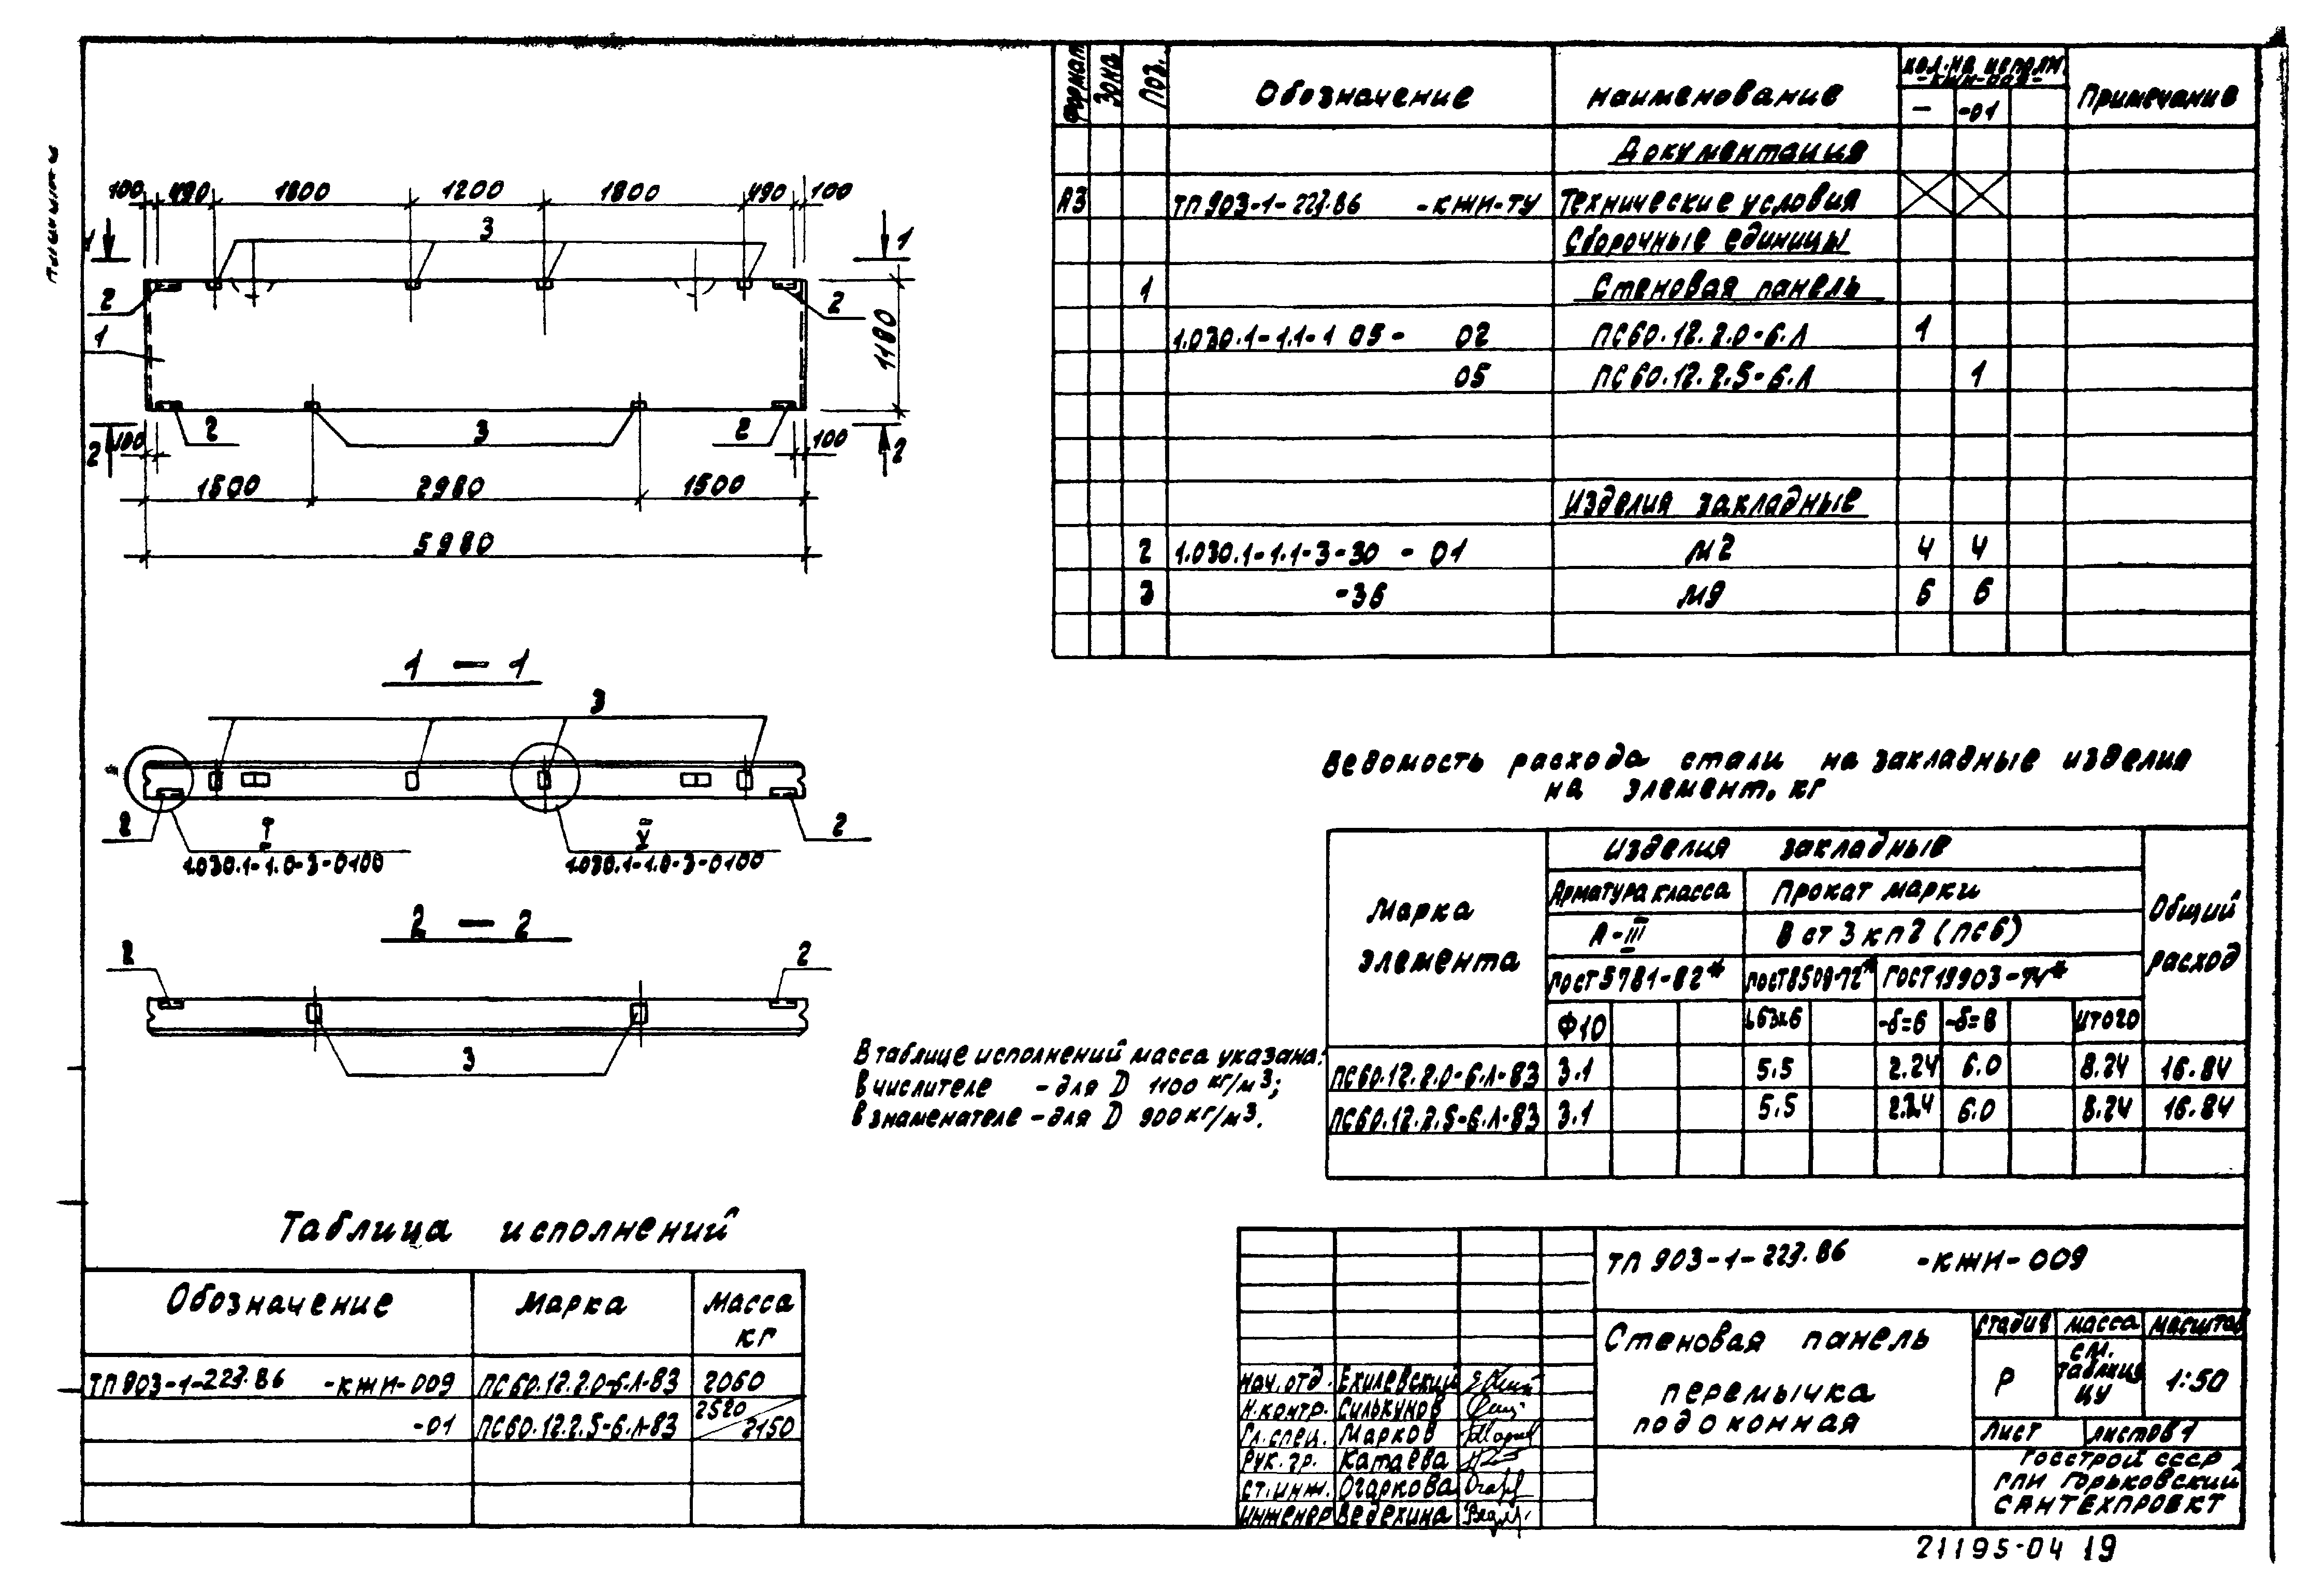 100 490 1800 1200 1800 490 100
3
1 1
2 2
1
1180
2 3 2
2 100 100 2
1500 2980 1500
5980
1 – 1
3
2 I V 2
1.030.1-1.0-3-0100 1.030.1-1.0-3-0100
2 – 2
2 2
3
В таблице исполнений масса указана:
в числителе - для D 1100 кг/м3;
в знаменателе - для D 900 кг/м3.
Таблица исполнений
Обозначение Марка Масса
кг
ТП 903-1-223.86 -КЖИ-009 ПС60.12.2.0-6.Л-83 2060
-01 ПС60.12.2.5-6.Л-83 2520/2150
Формат Зона Поз. Обозначение Наименование Кол. на исполн. -КЖИ-009- Примечание
— -01
Документация
А3 ТП 903-1-223.86 -КЖИ-ТУ Технические условия
Сборочные единицы
1 Стеновая панель
1.030.1-1.1-1 05- 02 ПС60.12.2.0-6.Л 1
05 ПС60.12.2.5-6.Л 1
Изделия закладные
2 1.030.1-1.1-3-30 - 01 М2 4 4
3 -36 М9 6 6
Ведомость расхода стали на закладные изделия
на элемент, кг
Марка элемента Изделия закладные Общий расход
Арматура класса Прокат марки
А-III Вст3кп2 (пс6)
ГОСТ 5781-82* ГОСТ 8509-72* ГОСТ 19903-74*
Ф10 L63х6 -δ=6 -δ=8 Итого
ПС60.12.2.0-6.Л-83 3.1 5.5 2.24 6.0 8.24 16.84
ПС60.12.2.5-6.Л-83 3.1 5.5 2.24 6.0 8.24 16.84
ТП 903-1-223.86 -КЖИ-009
Стеновая панель
перемычка
подоконная
Стадия Масса Масштаб
Р см. таблицу 1:50
Лист Листов 1
Госстрой СССР
ГПИ Горьковский
САНТЕХПРОЕКТ
Нач. отд. Ехилевский
Н. контр. Силькунов
Гл. спец. Марков
Рук. гр. Катаева
Ст. инж. Огаркова
Инженер Ведехина
21195-04 19